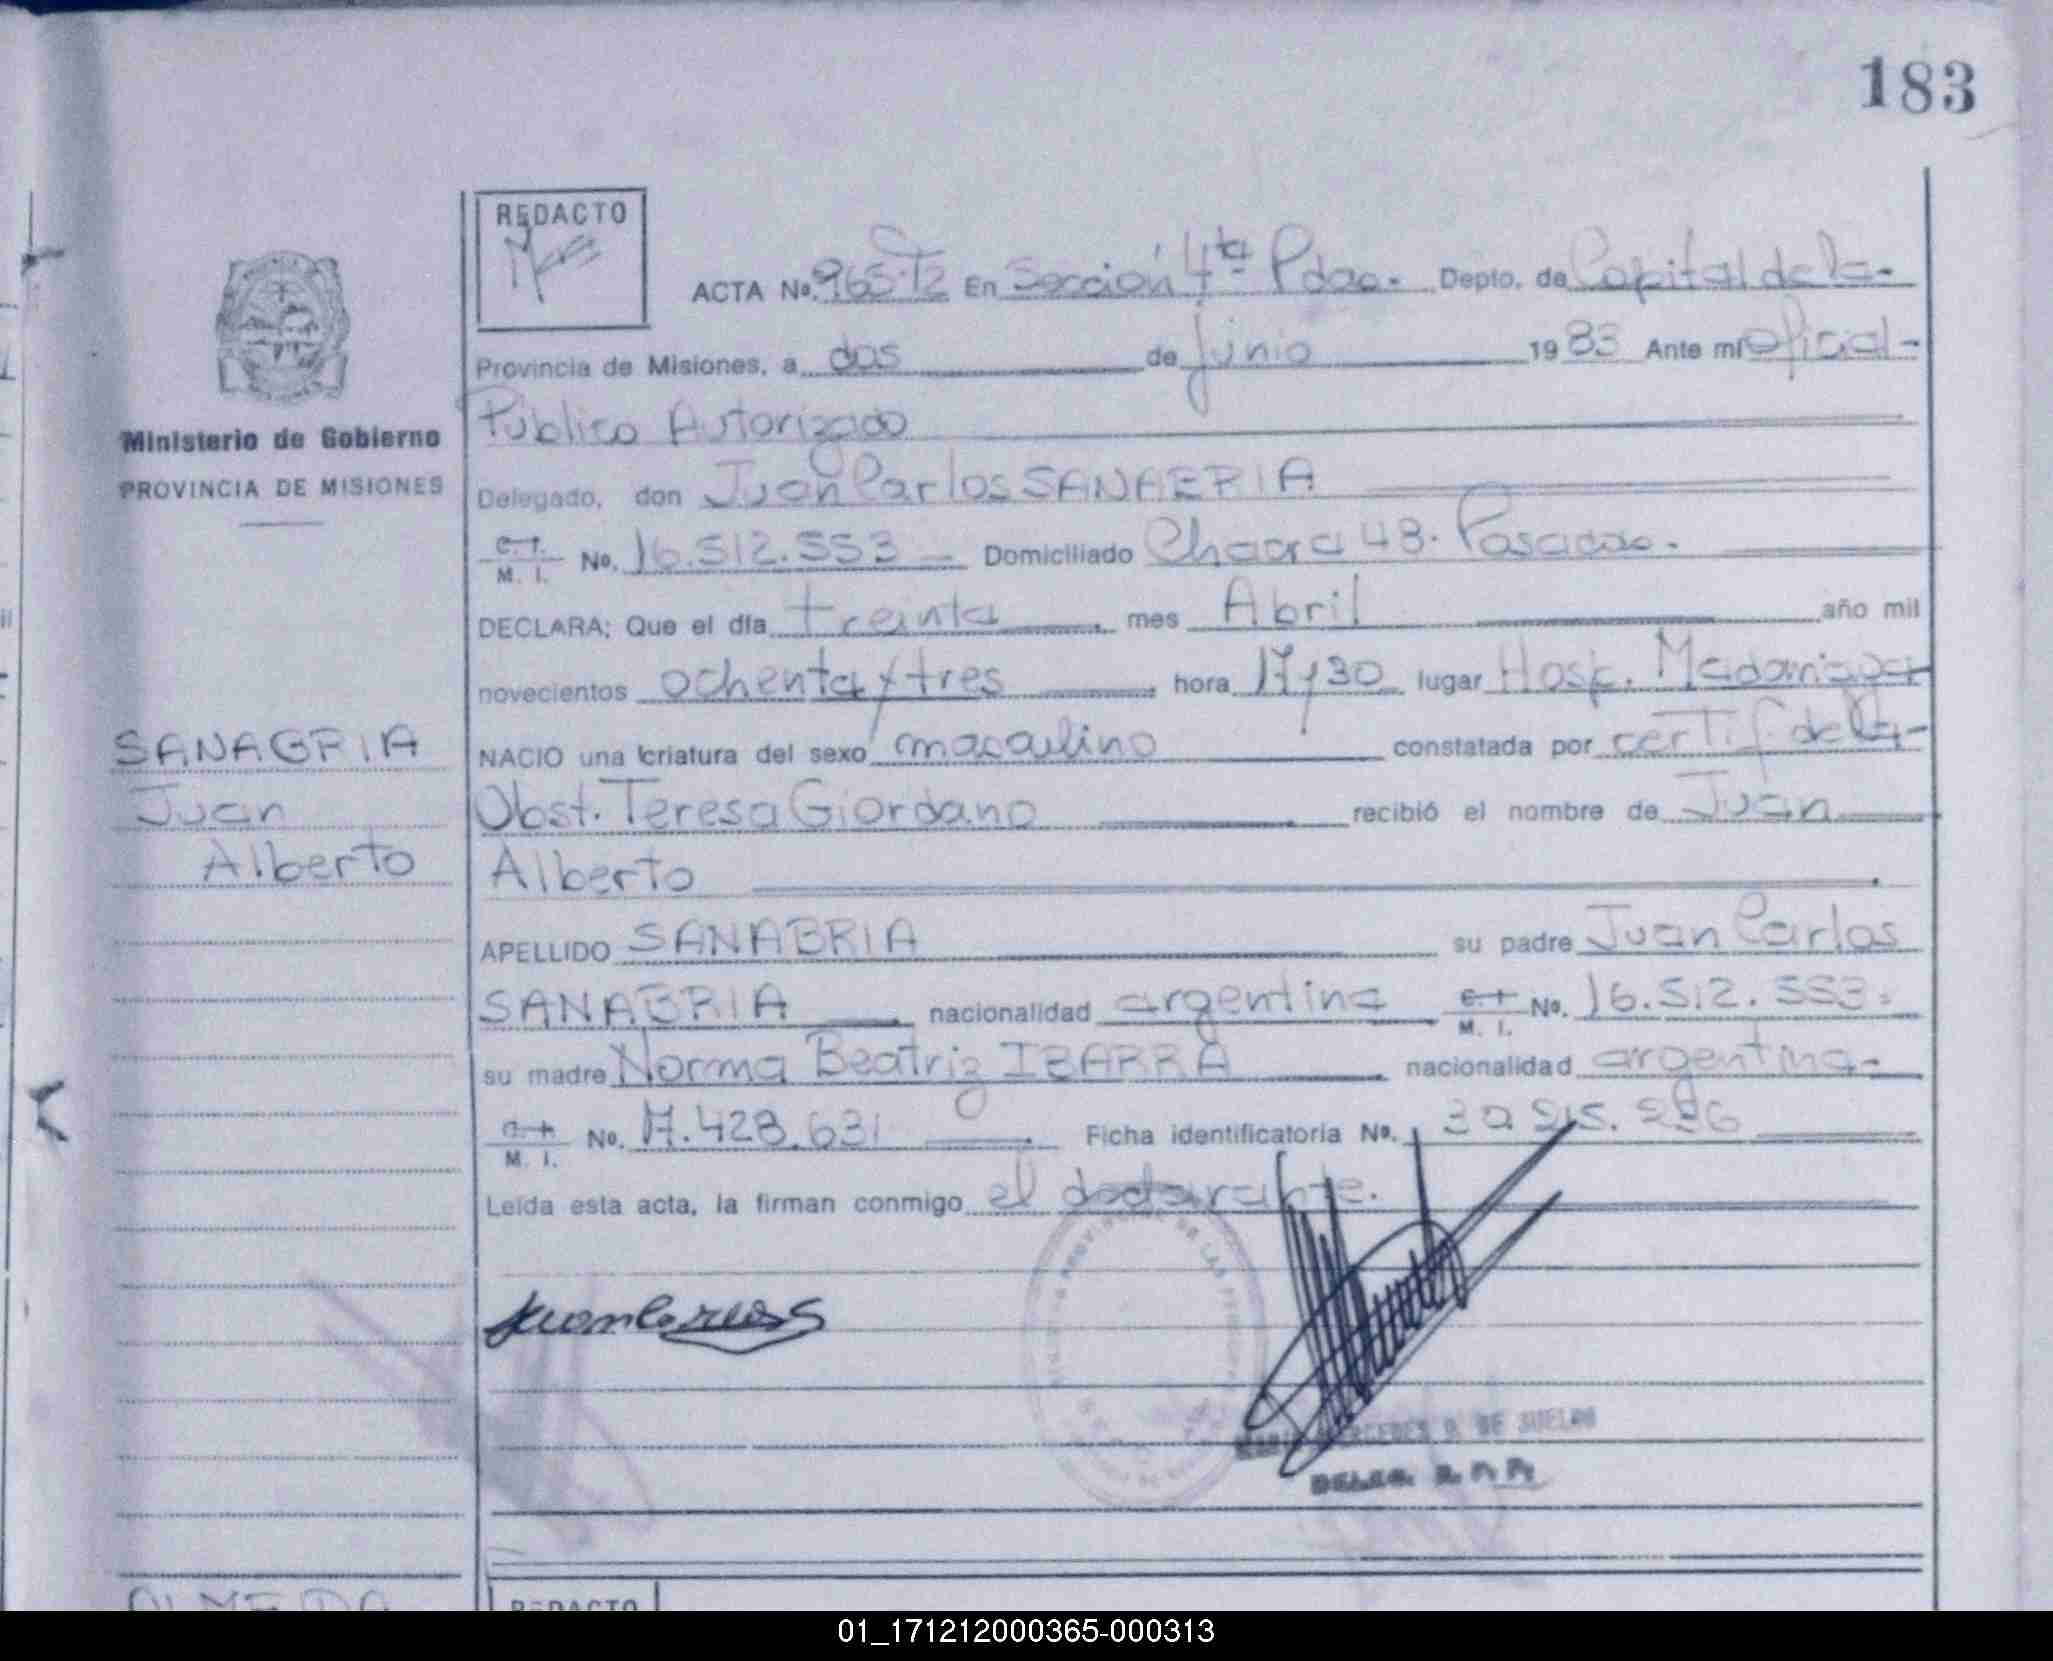 183
REDACTO
ACTA No. 965-T2 En Sección 4ta Pdas. Depto. de Capital de la-
Provincia de Misiones, a dos de junio 1983 Ante mí oficial-
Ministerio de Gobierno
PROVINCIA DE MISIONES
Público Autorizado
Delegado, don Juan Carlos SANABRIA
C. I. M. I. No. 16.512.553 Domiciliado Chacra 48. Posadas.
DECLARA: Que el día treinta mes Abril año mil
novecientos ochenta y tres hora 17,30 lugar Hosp. Madariaga
NACIO una criatura del sexo masculino constatada por certif. de la-
Obst. Teresa Giordano recibió el nombre de Juan
Alberto
SANAGRIA
Juan
Alberto
APELLIDO SANABRIA su padre Juan Carlos
SANABRIA nacionalidad argentina M. I. No. 16.512.553.
su madre Norma Beatriz IBARRA nacionalidad argentina-
M. I. No. 17.428.631 Ficha identificatoria No.
Leída esta acta, la firman conmigo el declarante.
Juan Carlos
DE SUELDO
REDACTO
01_171212000365-000313